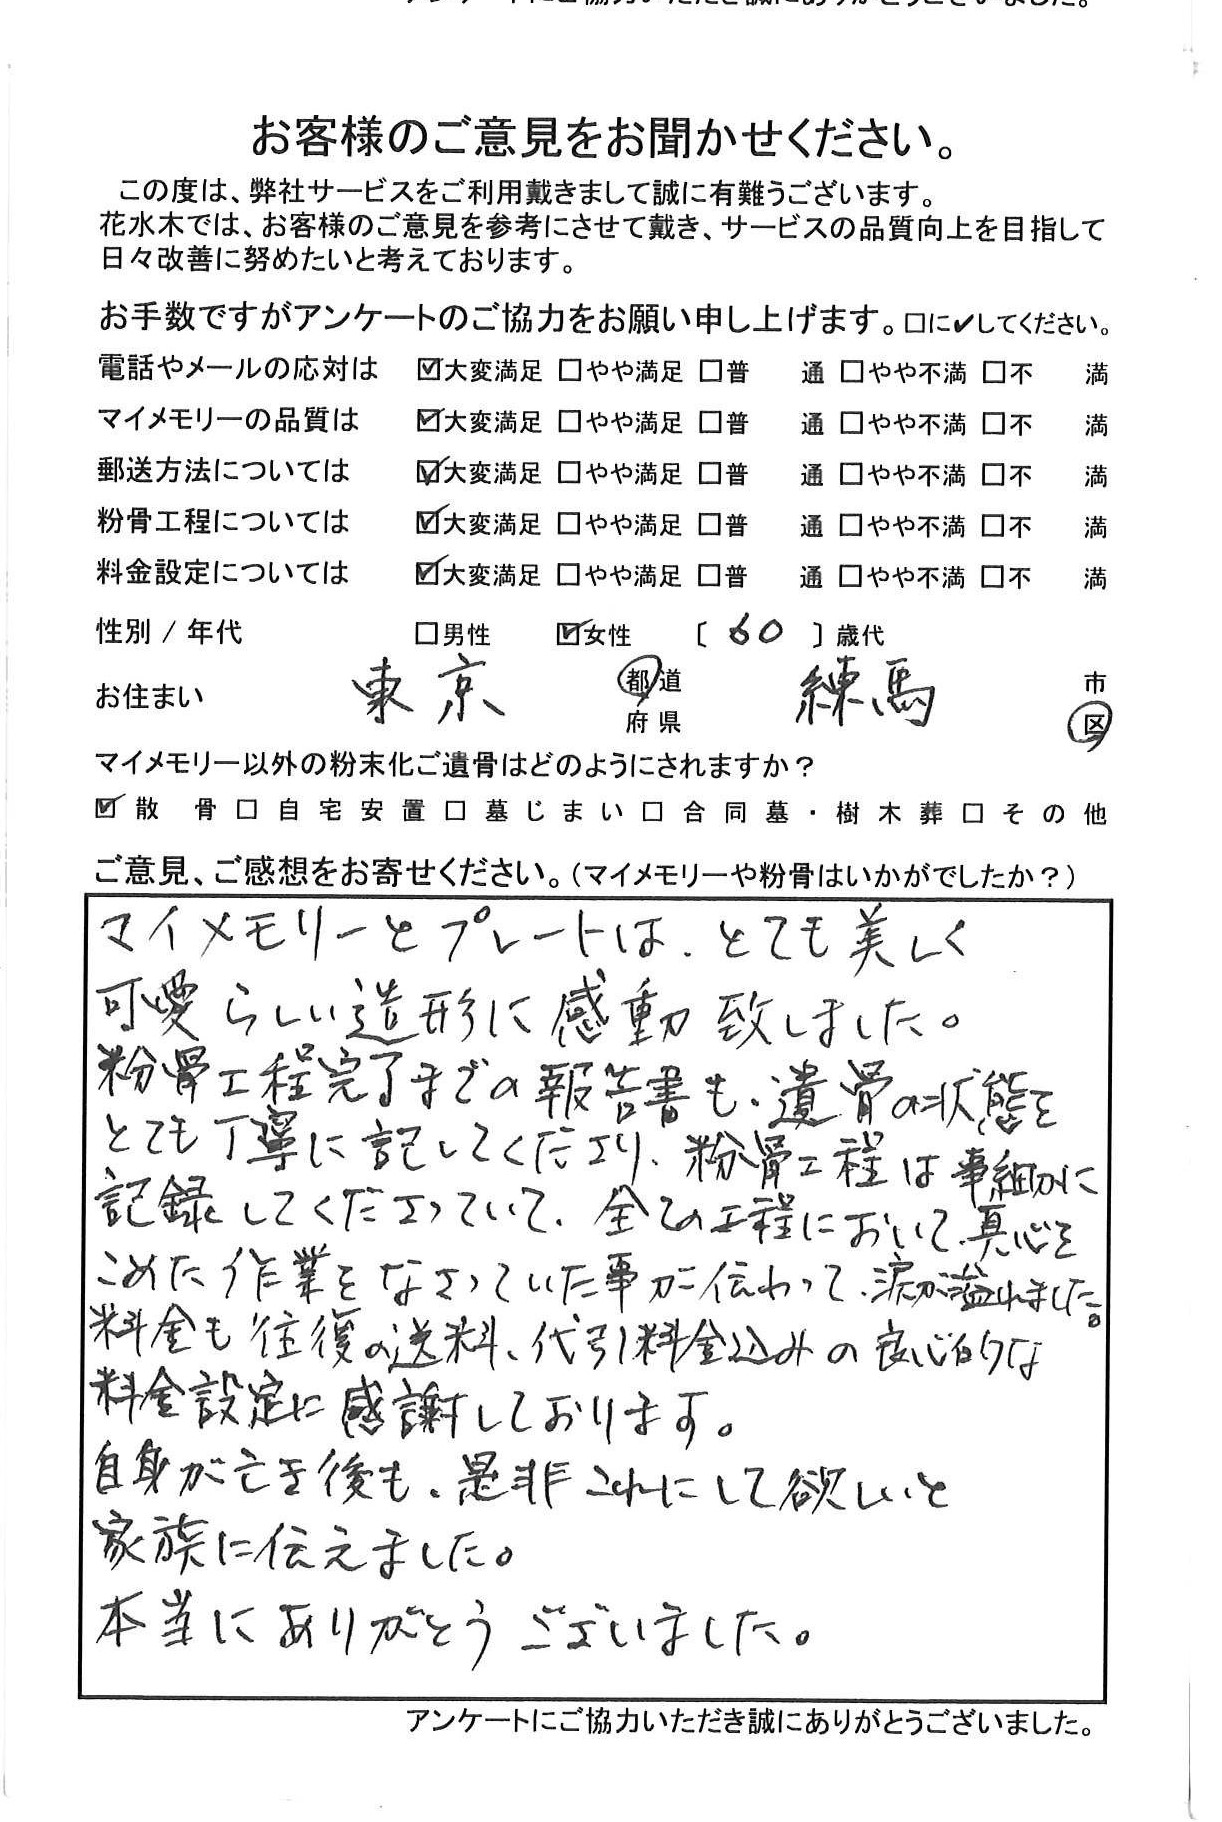 アンケートにご協力いただき誠にありがとうございました。
お客様のご意見をお聞かせください。
この度は、弊社サービスをご利用戴きまして誠に有難うございます。
花水木では、お客様のご意見を参考にさせて戴き、サービスの品質向上を目指して
日々改善に努めたいと考えております。
お手数ですがアンケートのご協力をお願い申し上げます。□に✔してください。
電話やメールの応対は ☑大変満足 □やや満足 □普 通 □やや不満 □不 満
マイメモリーの品質は ☑大変満足 □やや満足 □普 通 □やや不満 □不 満
郵送方法については ☑大変満足 □やや満足 □普 通 □やや不満 □不 満
粉骨工程については ☑大変満足 □やや満足 □普 通 □やや不満 □不 満
料金設定については ☑大変満足 □やや満足 □普 通 □やや不満 □不 満
性別 / 年代 □男性 ☑女性 〔 60 〕歳代
お住まい 東京 都道府県 練馬 市区
マイメモリー以外の粉末化ご遺骨はどのようにされますか？
☑散 骨□自宅安置□墓じまい□合同墓・樹木葬□その他
ご意見、ご感想をお寄せください。（マイメモリーや粉骨はいかがでしたか？）
マイメモリーとプレートは、とても美しく
可愛らしい造形に感動致しました。
粉骨工程完了までの報告書も、遺骨の状態を
とても丁寧に記してくださり、粉骨工程は事細かに
記録してくださっていて、全ての工程において、真心を
こめた作業をなさっていた事が伝わって、涙が溢れました。
料金も往復の送料、代引料金込みの良心的な
料金設定に感謝しております。
自身が亡き後も、是非これにして欲しいと
家族に伝えました。
本当にありがとうございました。
アンケートにご協力いただき誠にありがとうございました。